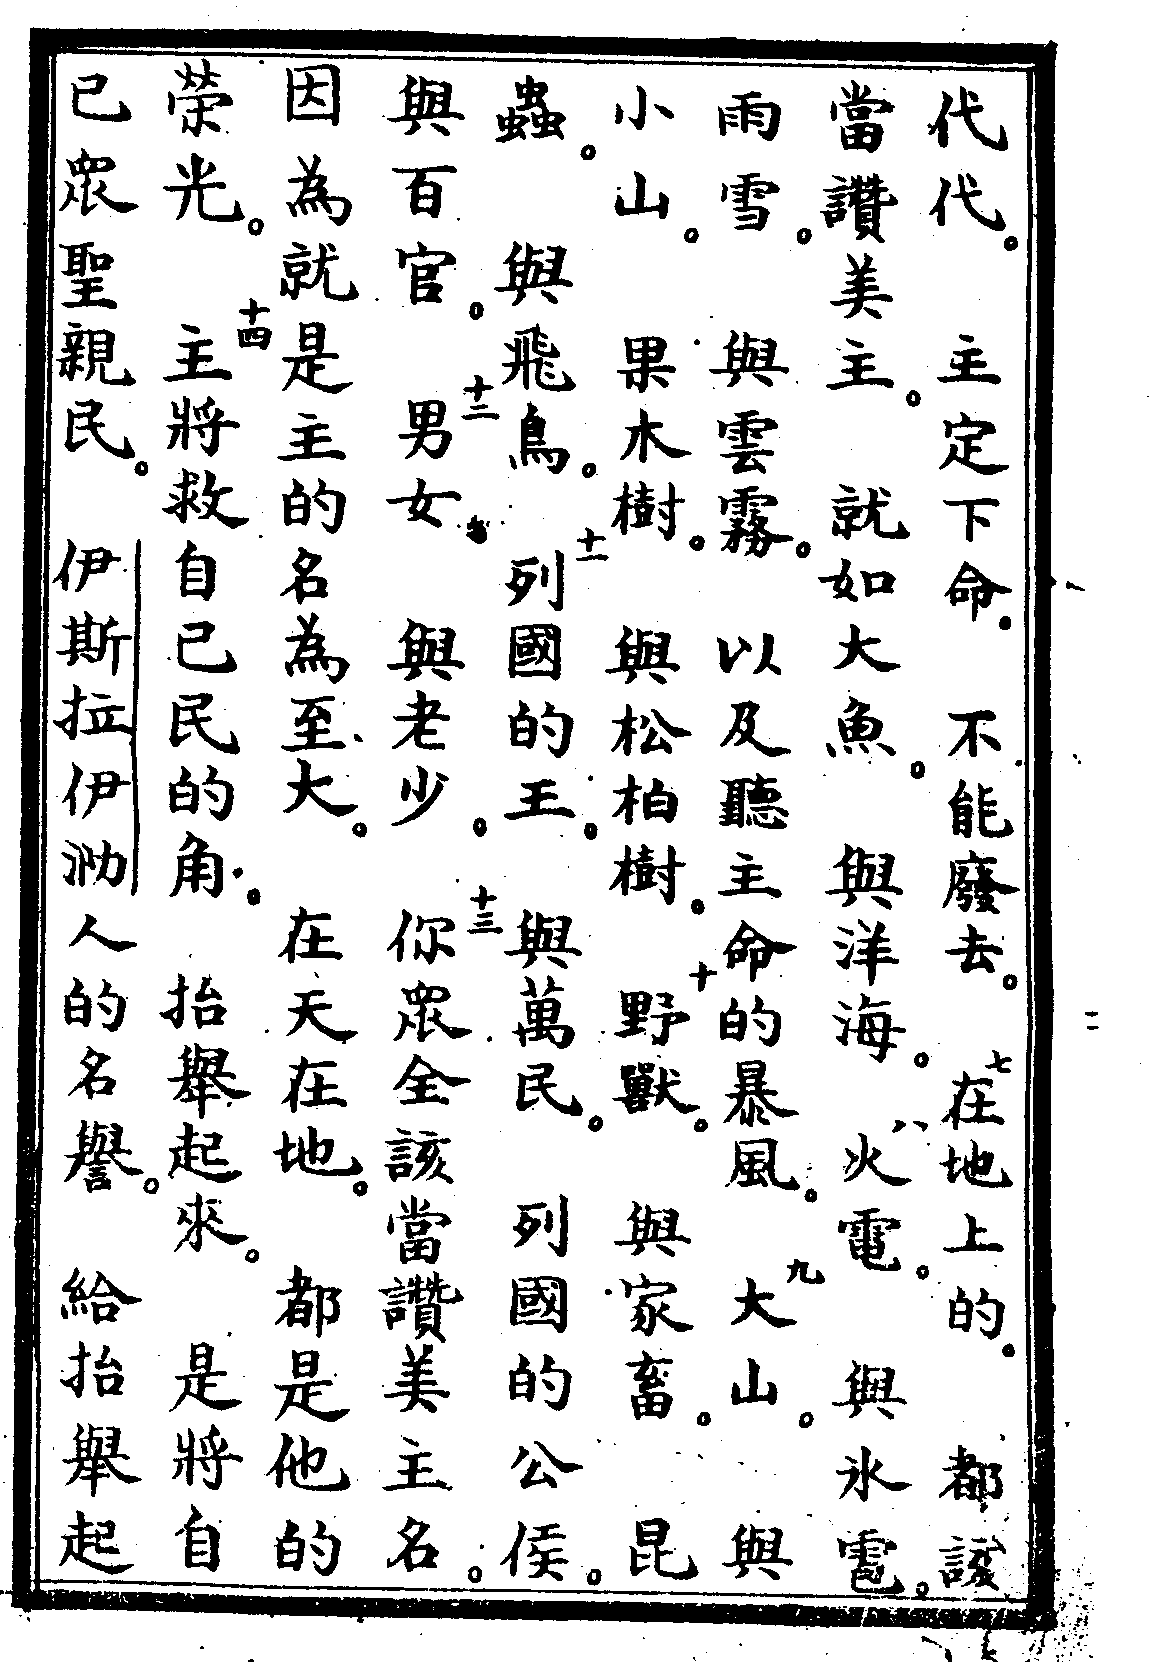 代代。主定下命。不能廢去。七在地上的。都該
當讚美主。就如大魚。與洋海。八火電。與氷雹。
雨雪。與雲霧。以及聽主命的暴風。九大山。與
小山。果木樹。與松柏樹。十野獸。與家畜。昆
蟲。與飛鳥。十一列國的王。與萬民。列國的公侯。
與百官。十二男女。與老少。十三你眾全該當讚美主名。
因為就是主的名為至大。在天在地。都是他的
榮光。十四主將救自己民的角。抬舉起來。是將自
己眾聖親民。伊斯拉伊泐人的名譽。給抬舉起